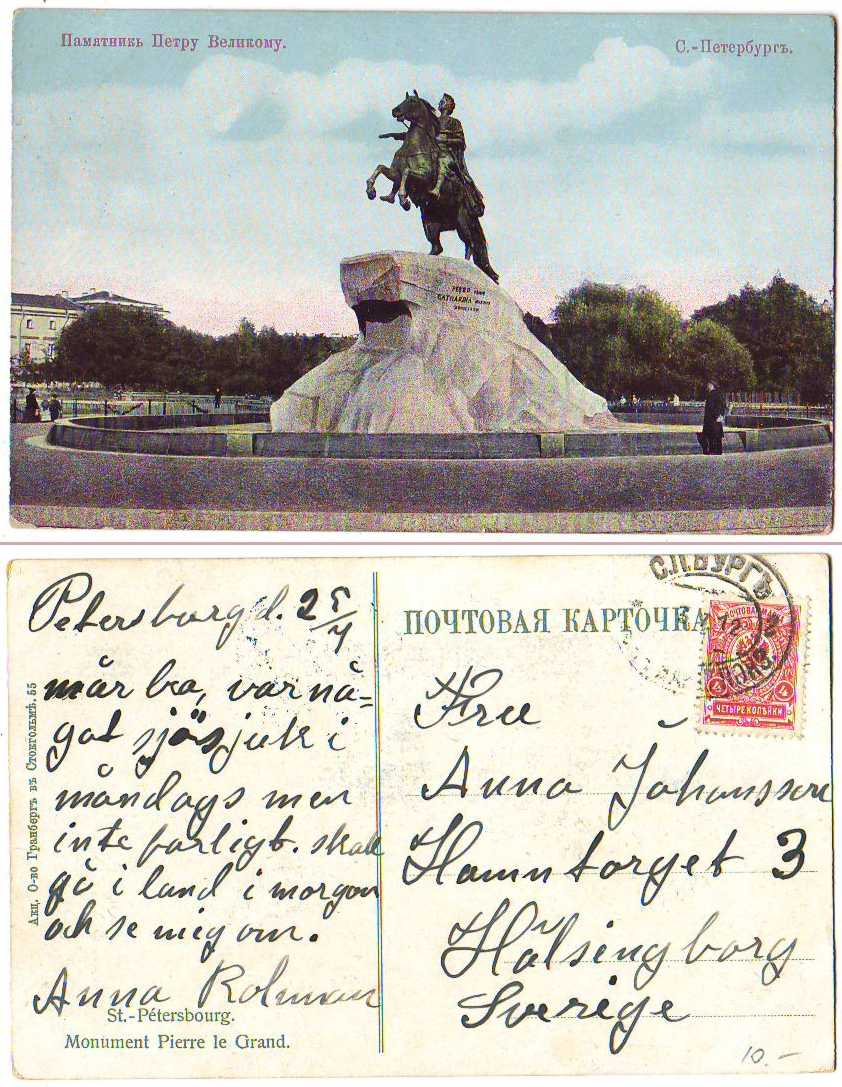 Памятникъ Петру Великому.
С.-Петербургъ.
PETRO primo
CATHARINA secunda
Petersburg d. 25/4
mår bra, var nå=
got sjösjuk i
måndags men
inte farligt. skall
gå i land i morgon
och se mig om.
Anna Rolman
St.-Pétersbourg.
Monument Pierre le Grand.
Акц. О-во Гранбергъ въ Стокгольмѣ. 55
ПОЧТОВАЯ КАРТОЧКА
С.П.БУРГЪ
12
ПОЧТОВАЯ МАРКА
4 4
ЧЕТЫРЕ КОПѢЙКИ
Fru
Anna Johansson
Hamntorget 3
Hälsingborg
Sverige
10.-